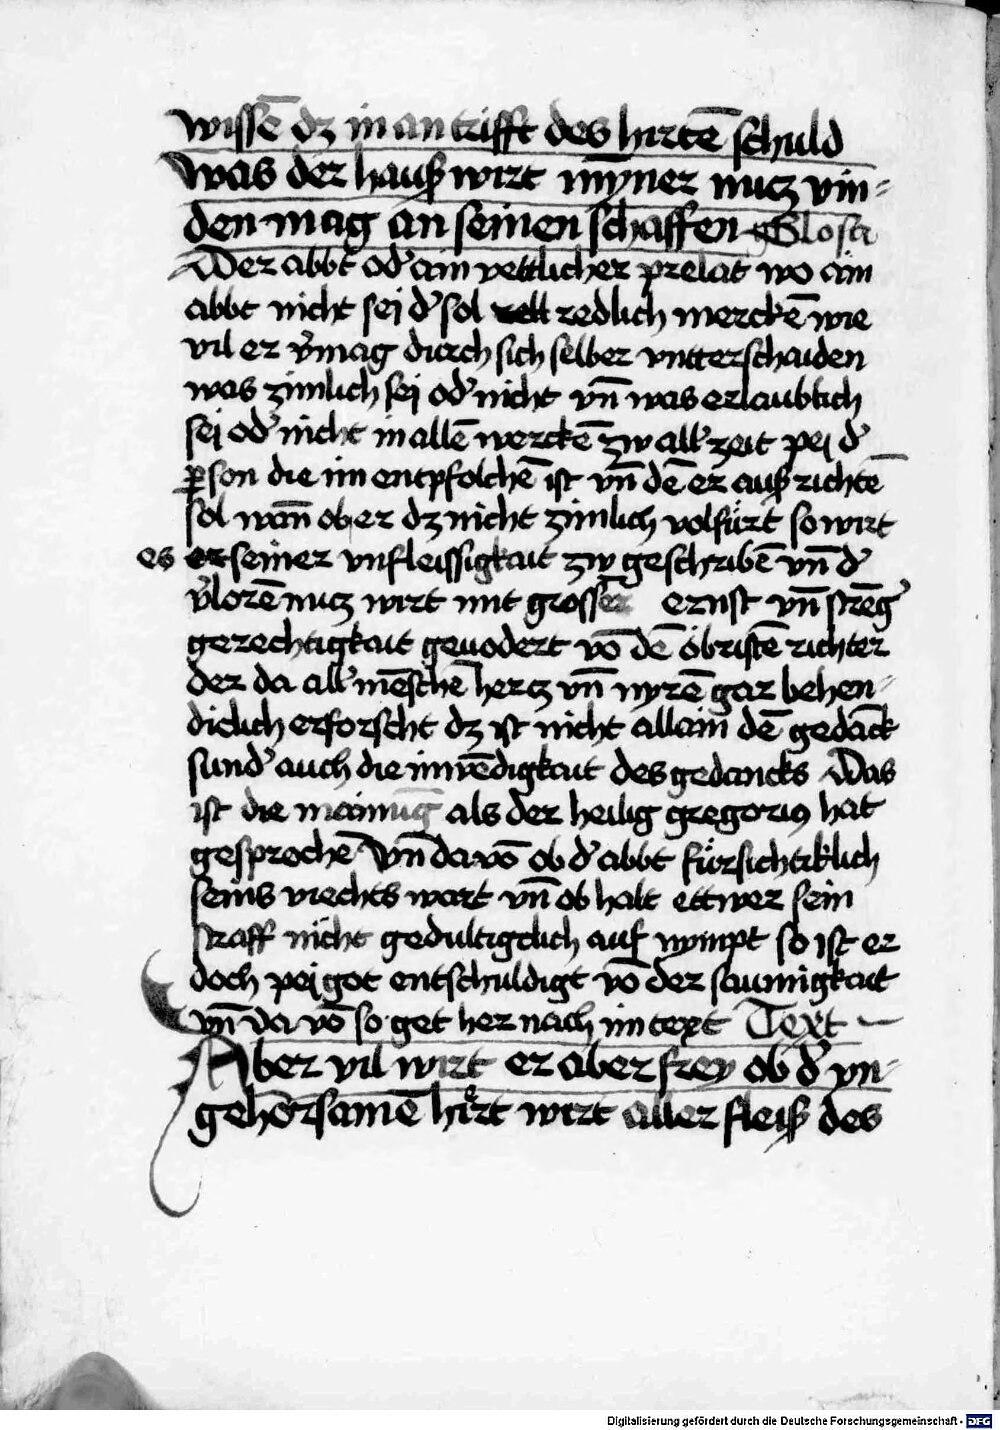 wissē dz in an trifft des hirtē schuld
was der hauß wirt mȳner nucz vin-
den mag an seinen schaffen Glosa
Der abbt od' ain yettlicher prelat wo ain
abbt nicht sej d' sol redlich merckē wie
vil er v'mag durch sich selber vntterschaiden
was zimlich sej od' nicht vn̄ was erlaublich
sej od' nicht in allē werckē zw all' zeit pej d'
ꝑson die im entpfolchē ist vn̄ dē er auß richtē
sol wan̄ ob er dz nicht zimlich volfürt so wirt
es seiner vnfleissigkait zw geschribē vn̄ d'
v'lorē nucz wirt mit grosser ernst vn̄ strēg'
gerechtigkait geuodert vō dē öbristē richter
der da all' mēschē hercz vn̄ nyrē gar behen-
diclich erforscht dz ist nicht allain dē gedāck
sund' auch die inwēdigkait des gedancks Das
ist die mainūg als der heilig gregoriꝰ hat
gesprochē Vn̄ da vō ob d' abbt fürsichtiklich
seins vrechts wart vn̄ ob halt ettwer sein
straff nicht gedultigclich auf nympt so ist er
doch pej got entschuldigt vō der saumigkait
vn̄ da vō so get her nach im text Text
Aber vil wirt er aber frey ob d' vn-
gehorsamē hirt wirt aller fleiß des
Digitalisierung gefördert durch die Deutsche Forschungsgemeinschaft - DFG